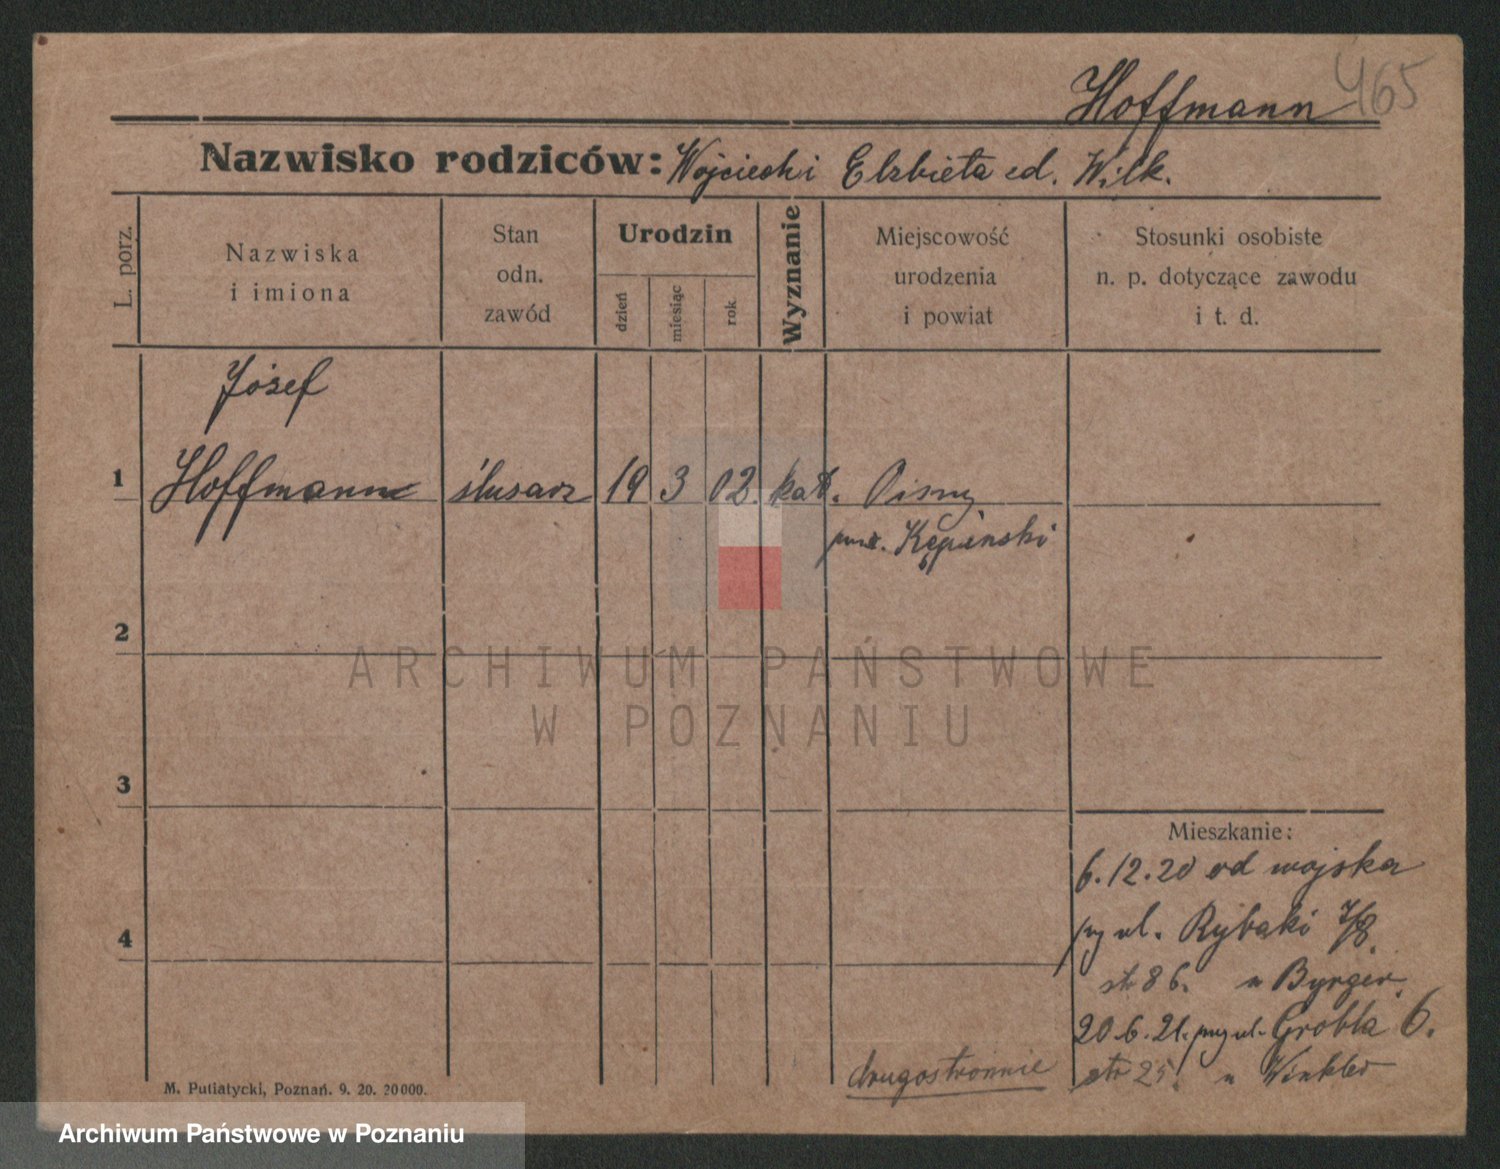 465
Hoffmann
Nazwisko rodziców: Wojciech i Elżbieta ed. Wilk.
L. porz.
Nazwiska
i imiona
Stan
odn.
zawód
Urodzin
dzień
miesiąc
rok
Wyznanie
Miejscowość
urodzenia
i powiat
Stosunki osobiste
n. p. dotyczące zawodu
i t. d.
Józef
1 Hoffmann ślusarz 19 3 02. kat. Pismy
pow. Kępiński
2
ARCHIWUM PAŃSTWOWE
W POZNANIU
3
Mieszkanie:
6.12.20 od wojska
4
ul. Rybaki 7/8.
str 86. u Byrger.
20.6.21. ul. Grobla 6.
drugostronnie
str 25. u Winkler
M. Putiatycki, Poznań. 9. 20. 20000.
Archiwum Państwowe w Poznaniu